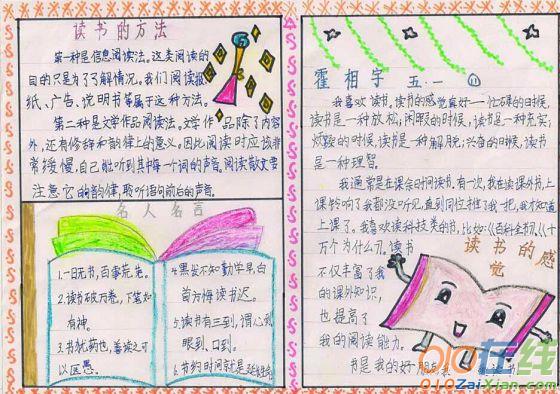 读书的方法
第一种是信息阅读法。这类阅读的
目的只是为了了解情况。我们阅读报
纸、广告、说明书等属于这种方法。
第二种是文学作品阅读法。文学作品除了内容
外,还有修辞和韵律上的意义。因此阅读时应该非
常缓慢,自己能听到其中每一个词的声音。阅读散文要
注意它的韵律,聆听语句前后的声音。
名人名言
1.一日无书,百事荒芜。
2.读书破万卷,下笔如
有神。
3.书犹药也,善读之可
以医愚。
4.黑发不知勤学早,白
首方悔读书迟。
5.读书有三到,谓心到
眼到、口到。
6.节约时间就是延长生命
霍相宇 五.一 11
我喜欢读书。读书的感觉真好——忙碌的日时候,
读书是一种放松;闲暇的时候,读书是一种充实;
烦躁的时候,读书是一种解脱;兴奋的时候,读书
是一种理智。
我通常是在课余时间读书。有一次,我在读课外书,上
课铃响了我都没听见,直到同位推了我一把,我才知道
上课了。我喜欢读科技类的书,比如:《百科全书》、《十
万个为什么》。读书
不仅丰富了我
的课外知识,
也提高了
我的阅读能力。
书是我的好朋友
读书的感
觉
010在线
010ZaiXian.com